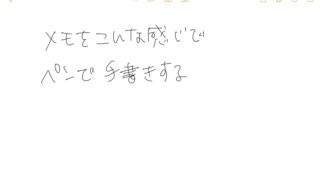 メモをこんな感じで
ペンで手書きする